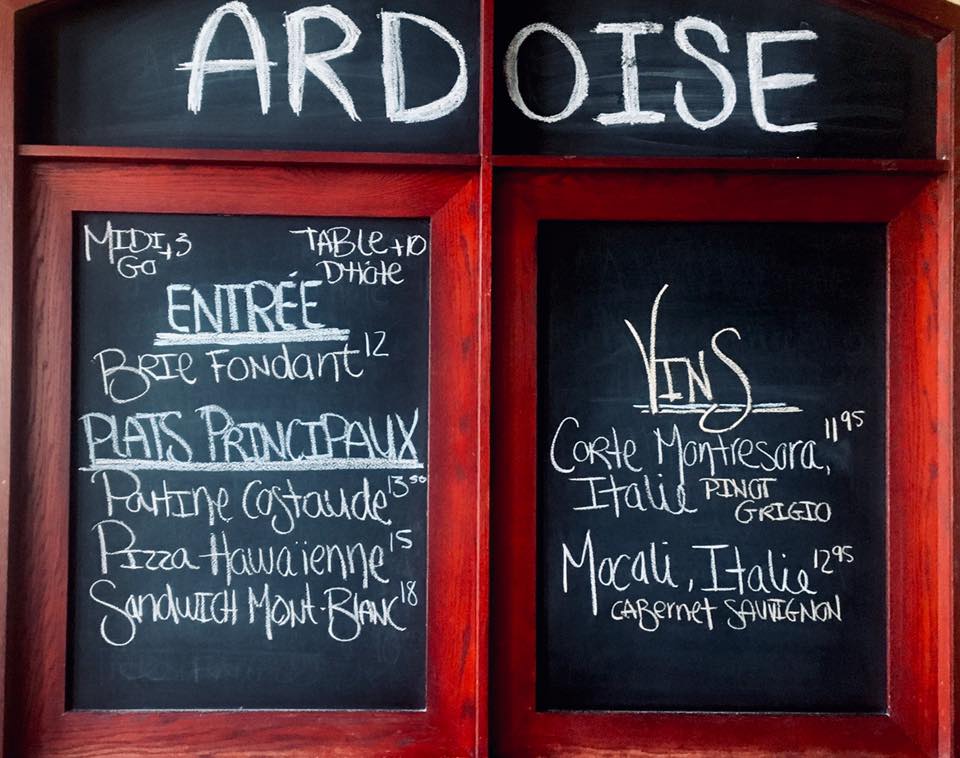 ARDOISE
MIDI +3
GO
TABLE +10
D'Hôte
ENTRÉE
BRIE FONDANT 12
PLATS PRINCIPAUX
Poutine Costaude 13 50
Pizza Hawaïenne 15
SANDWICH MONT-BLANC 18
VINS
CORTE Montresora, 11 95
Italie PINOT
GRIGIO
Mocali, Italie 12 95
CABERNET SAUVIGNON